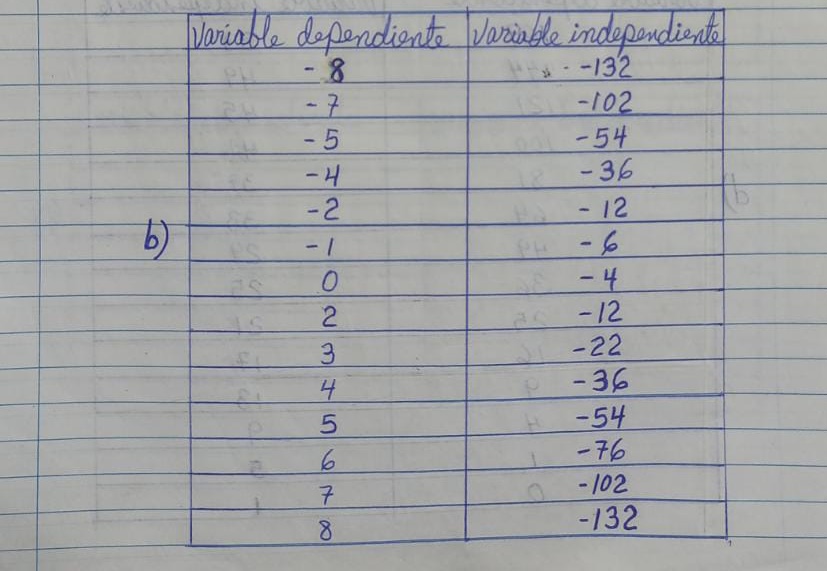 variable dependiente variable independiente
-8 -132
-7 -102
-5 -54
-4 -36
-2 -12
b) -1 -6
0 -4
2 -12
3 -22
4 -36
5 -54
6 -76
7 -102
8 -132